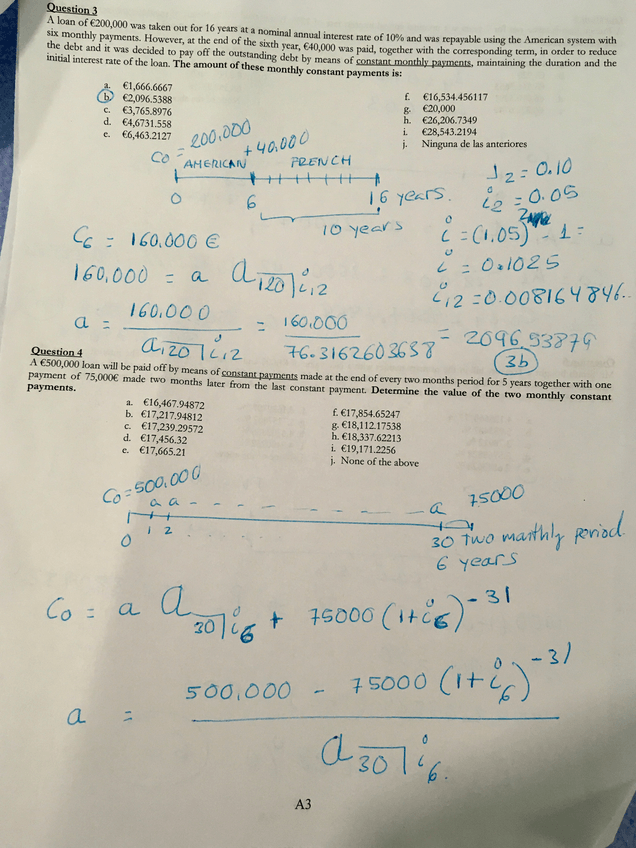 Question 3
A loan of €200,000 was taken out for 16 years at a nominal annual interest rate of 10% and was repayable using the American system with
six monthly payments. However, at the end of the sixth year, €40,000 was paid, together with the corresponding term, in order to reduce
the debt and it was decided to pay off the outstanding debt by means of constant monthly payments, maintaining the duration and the
initial interest rate of the loan. The amount of these monthly constant payments is:
a. €1,666.6667
b. €2,096.5388
c. €3,765.8976
d. €4,6731.558
e. €6,463.2127
f. €16,534.456117
g. €20,000
h. €26,206.7349
i. €28,543.2194
j. Ninguna de las anteriores
C0 = 200,000
+40,000
AMERICAN FRENCH
0 6 16 years.
10 years
J2 = 0.10
i2 = 0.05
i = (1.05)² - 1 =
i = 0.1025
i12 = 0.008164846..
C6 = 160,000 €
160,000 = a a120|i12
a = 160,000 / a120|i12 = 160,000 / 76.3162603638 = 2096,53879
3b
Question 4
A €500,000 loan will be paid off by means of constant payments made at the end of every two months period for 5 years together with one
payment of 75,000€ made two months later from the last constant payment. Determine the value of the two monthly constant
payments.
a. €16,467.94872
b. €17,217.94812
c. €17,239.29572
d. €17,456.32
e. €17,665.21
f. €17,854.65247
g. €18,112.17538
h. €18,337.62213
i. €19,171.2256
j. None of the above
C0 = 500,000
a a - - - - - - - a 75000
0 1 2 . . . . . 30 two monthly period.
6 years
C0 = a a30|i6 + 75000 (1+i6)-31
a = 500,000 - 75000 (1+i6)-31
a30|i6.
A3